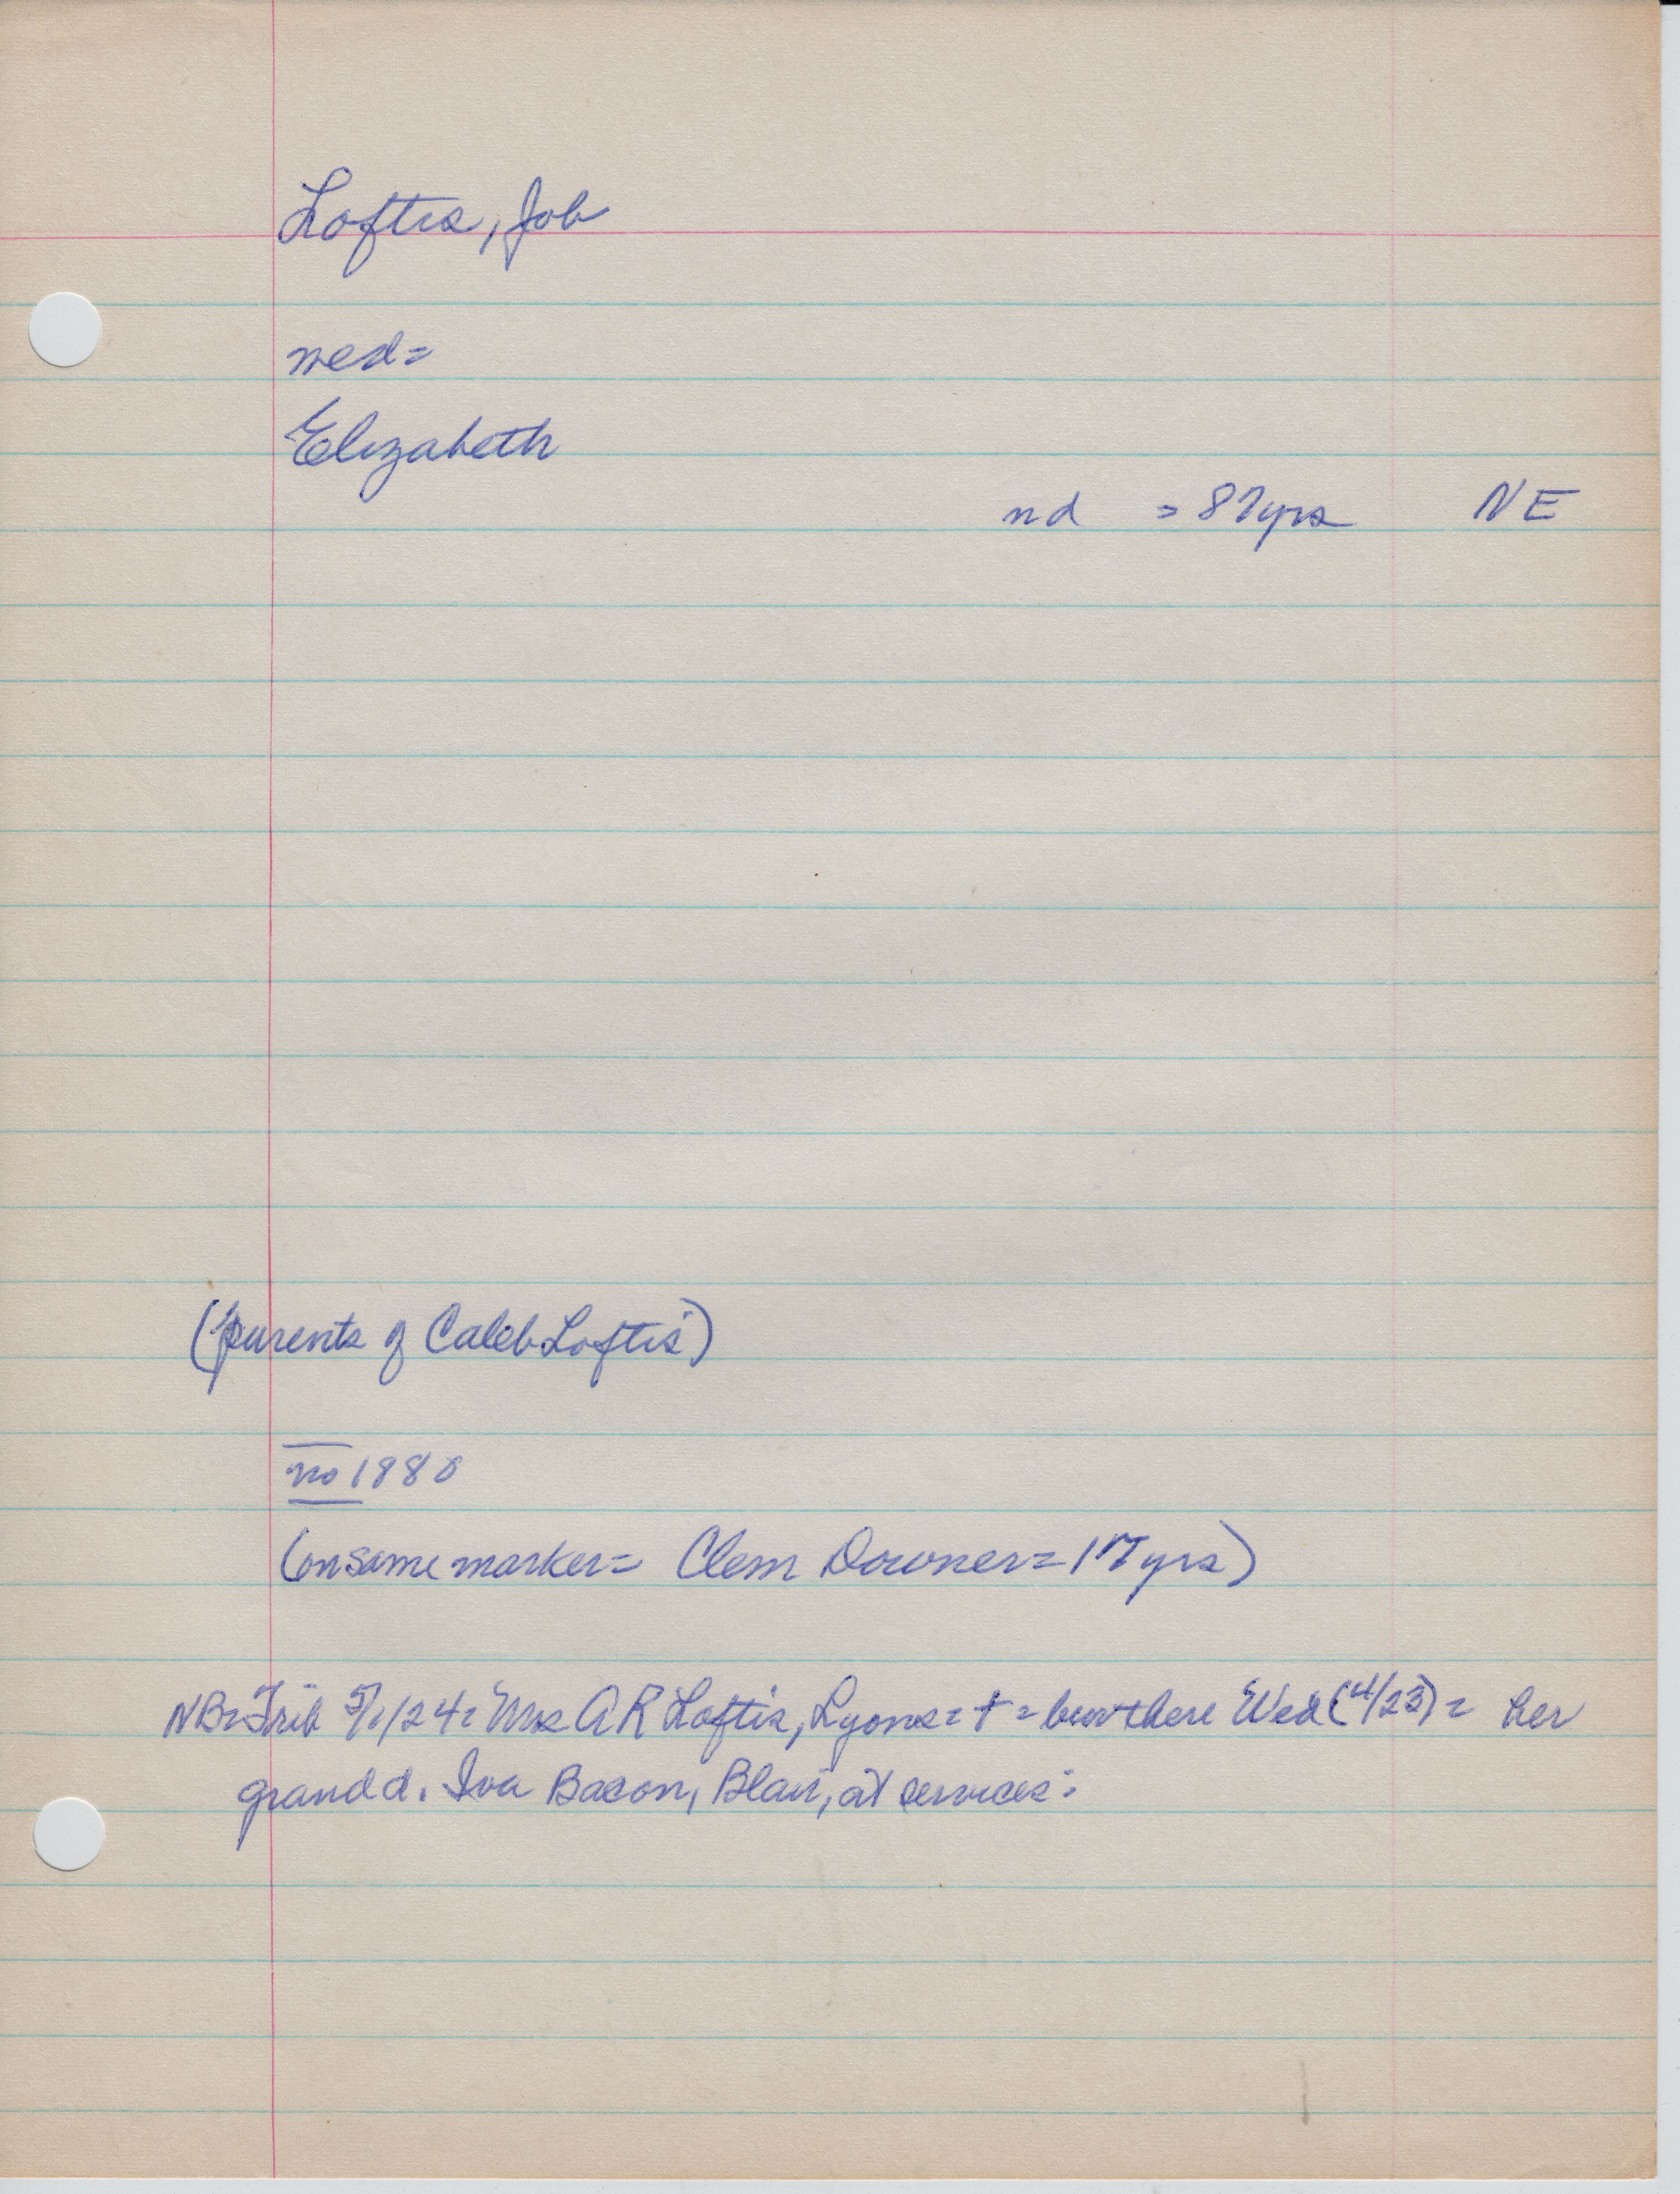 Loftis, Job
wed=
Elizabeth
nd = 87yrs NE
(parents of Caleb Loftis)
no 1880
(on same marker= Clem Downer= 17 yrs)
NB=Trib 5/1/24= Mrs A R Loftis, Lyons= + = bur there Wed (4/23) = her
grand d. Iva Bacon, Blair, at services: